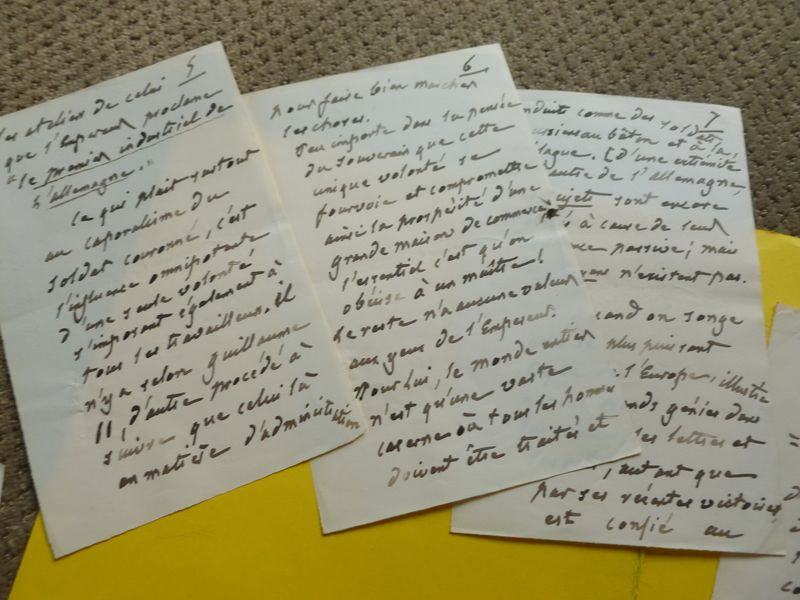 5
les ateliers de celui
que l'Empereur proclame
"le premier industriel de
l'allemagne."
Ce qui plait surtout
au caporalisme du
soldat couronné, c'est
l'influence omnipotente
d'une seule volonté
s'imposant également à
tous les travailleurs. Il
n'y a selon Guillaume
II, d'autre procédé à
suivre que celui là
en matière d'administration
6
pour faire bien marcher
les choses.
Peu importe dans la pensée
du souverain que cette
unique volonté se
fourvoie et compromette
ainsi la prospérité d'une
grande maison de commerce
l'essentiel c'est qu'on
obéisse à un maître!
Le reste n'a aucune valeur
aux yeux de l'Empereur.
Pour lui, le monde entier
n'est qu'une vaste
caserne où tous les hommes
doivent être traités et
7
conduit comme des soldats
au bâton et à la
d'une extrémité
autre de l'allemagne,
sujets sont encore
à cause de leur
passive; mais
n'existent pas.
quand on songe
plus puissant
l'Europe, illustré
génies dans
les lettres et
autant que
par ses récentes victoires,
est confié au